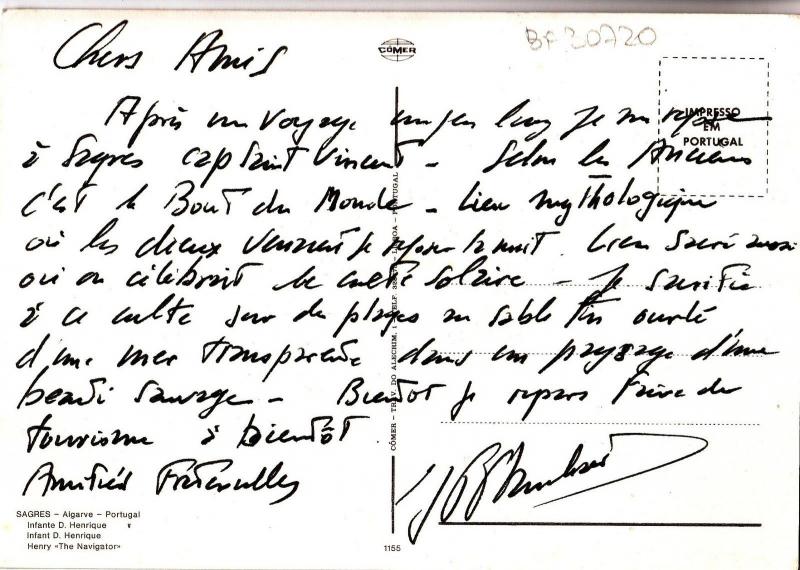 Chers Amis
CÔMER
BF 20720
IMPRESSO
EM
PORTUGAL
Après un voyage un peu long je me repose
à Sagres cap Saint Vincent - Selon les Anciens
c'est le Bout du Monde - Lieu mythologique
où les dieux venaient se reposer la nuit. Lieu sacré aussi
où on célébrait le culte solaire - Je sacrifie
à ce culte sur des plages au sable fin ourlé
d'une mer transparente dans un paysage d'une
beauté sauvage - Bientôt je repars faire du
tourisme à bientôt
Amitiés Fraternelles
SAGRES – Algarve – Portugal
Infante D. Henrique
Infant D. Henrique
Henry «The Navigator»
CÔMER – TRAV. DO ALECRIM, 1 – TELF. – LISBOA – PORTUGAL
1155